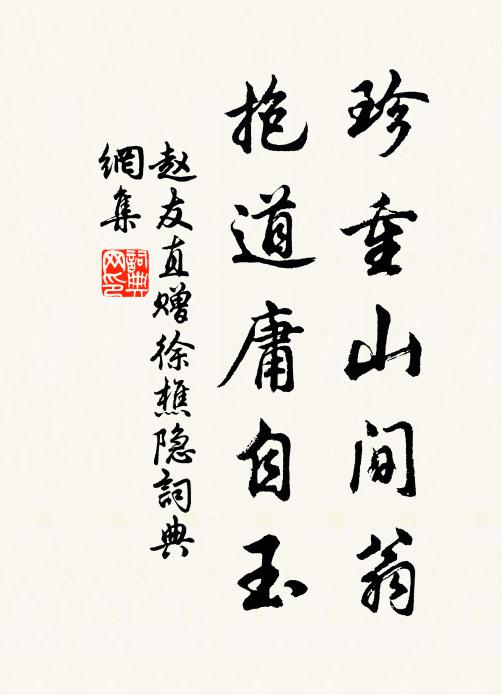 珍重山间翁
抱道庸自玉
赵友直赠徐樵隐詞典
網集
詞典
网印